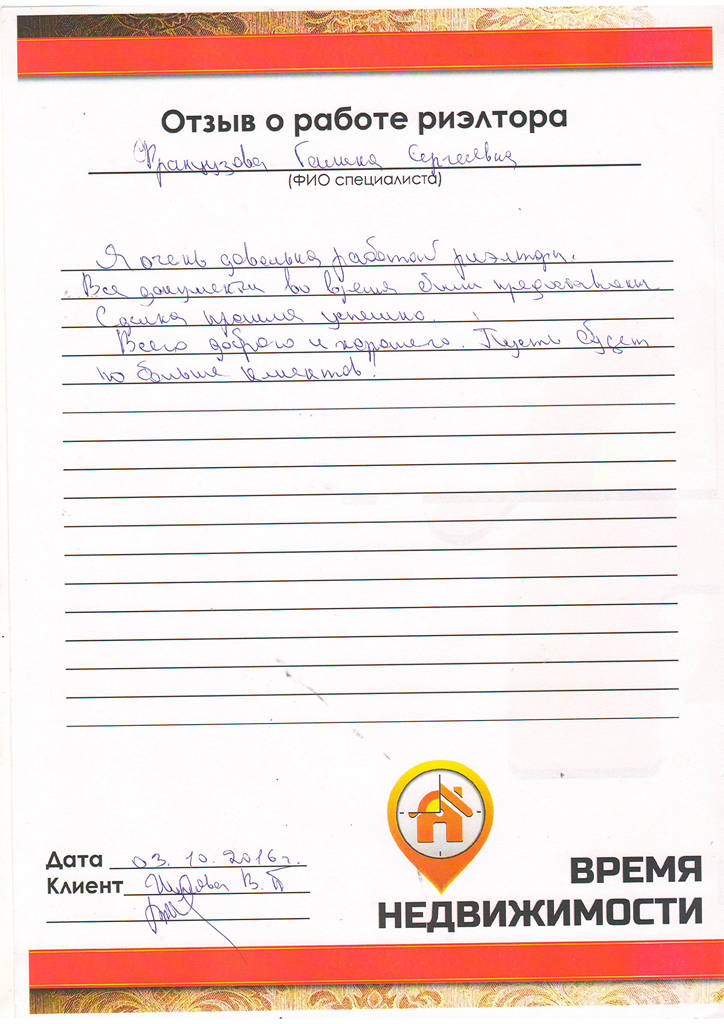 Отзыв о работе риэлтора
Французова Галина Сергеевна
(ФИО специалиста)
Я очень довольна работой риэлтора.
Все документы во время были предоставлены.
Сделка прошла успешно.
Всего доброго и хорошего. Пусть будет
по больше клиентов!
Дата 03. 10. 2016 г.
Клиент В. П
ВРЕМЯ
НЕДВИЖИМОСТИ